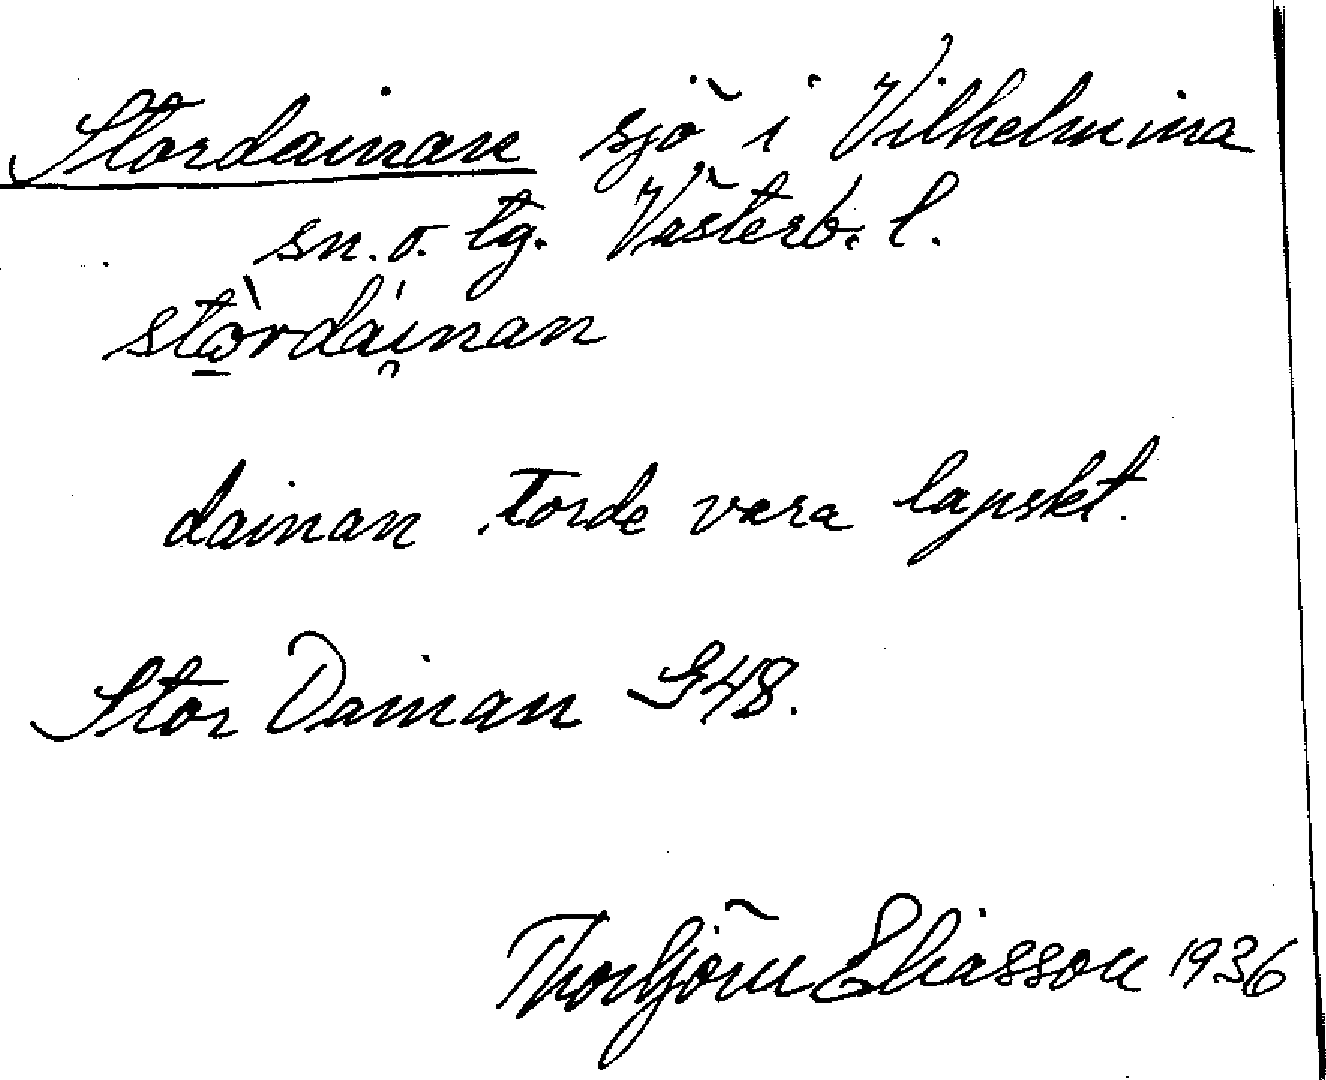 Stordainan sjö i Vilhelmina
sn. o. tg. Västerb. l.
stòrdái̯nan
dainan torde vara lapskt.
Stor Dainan G48.
Thorbjörn Eliasson 1936